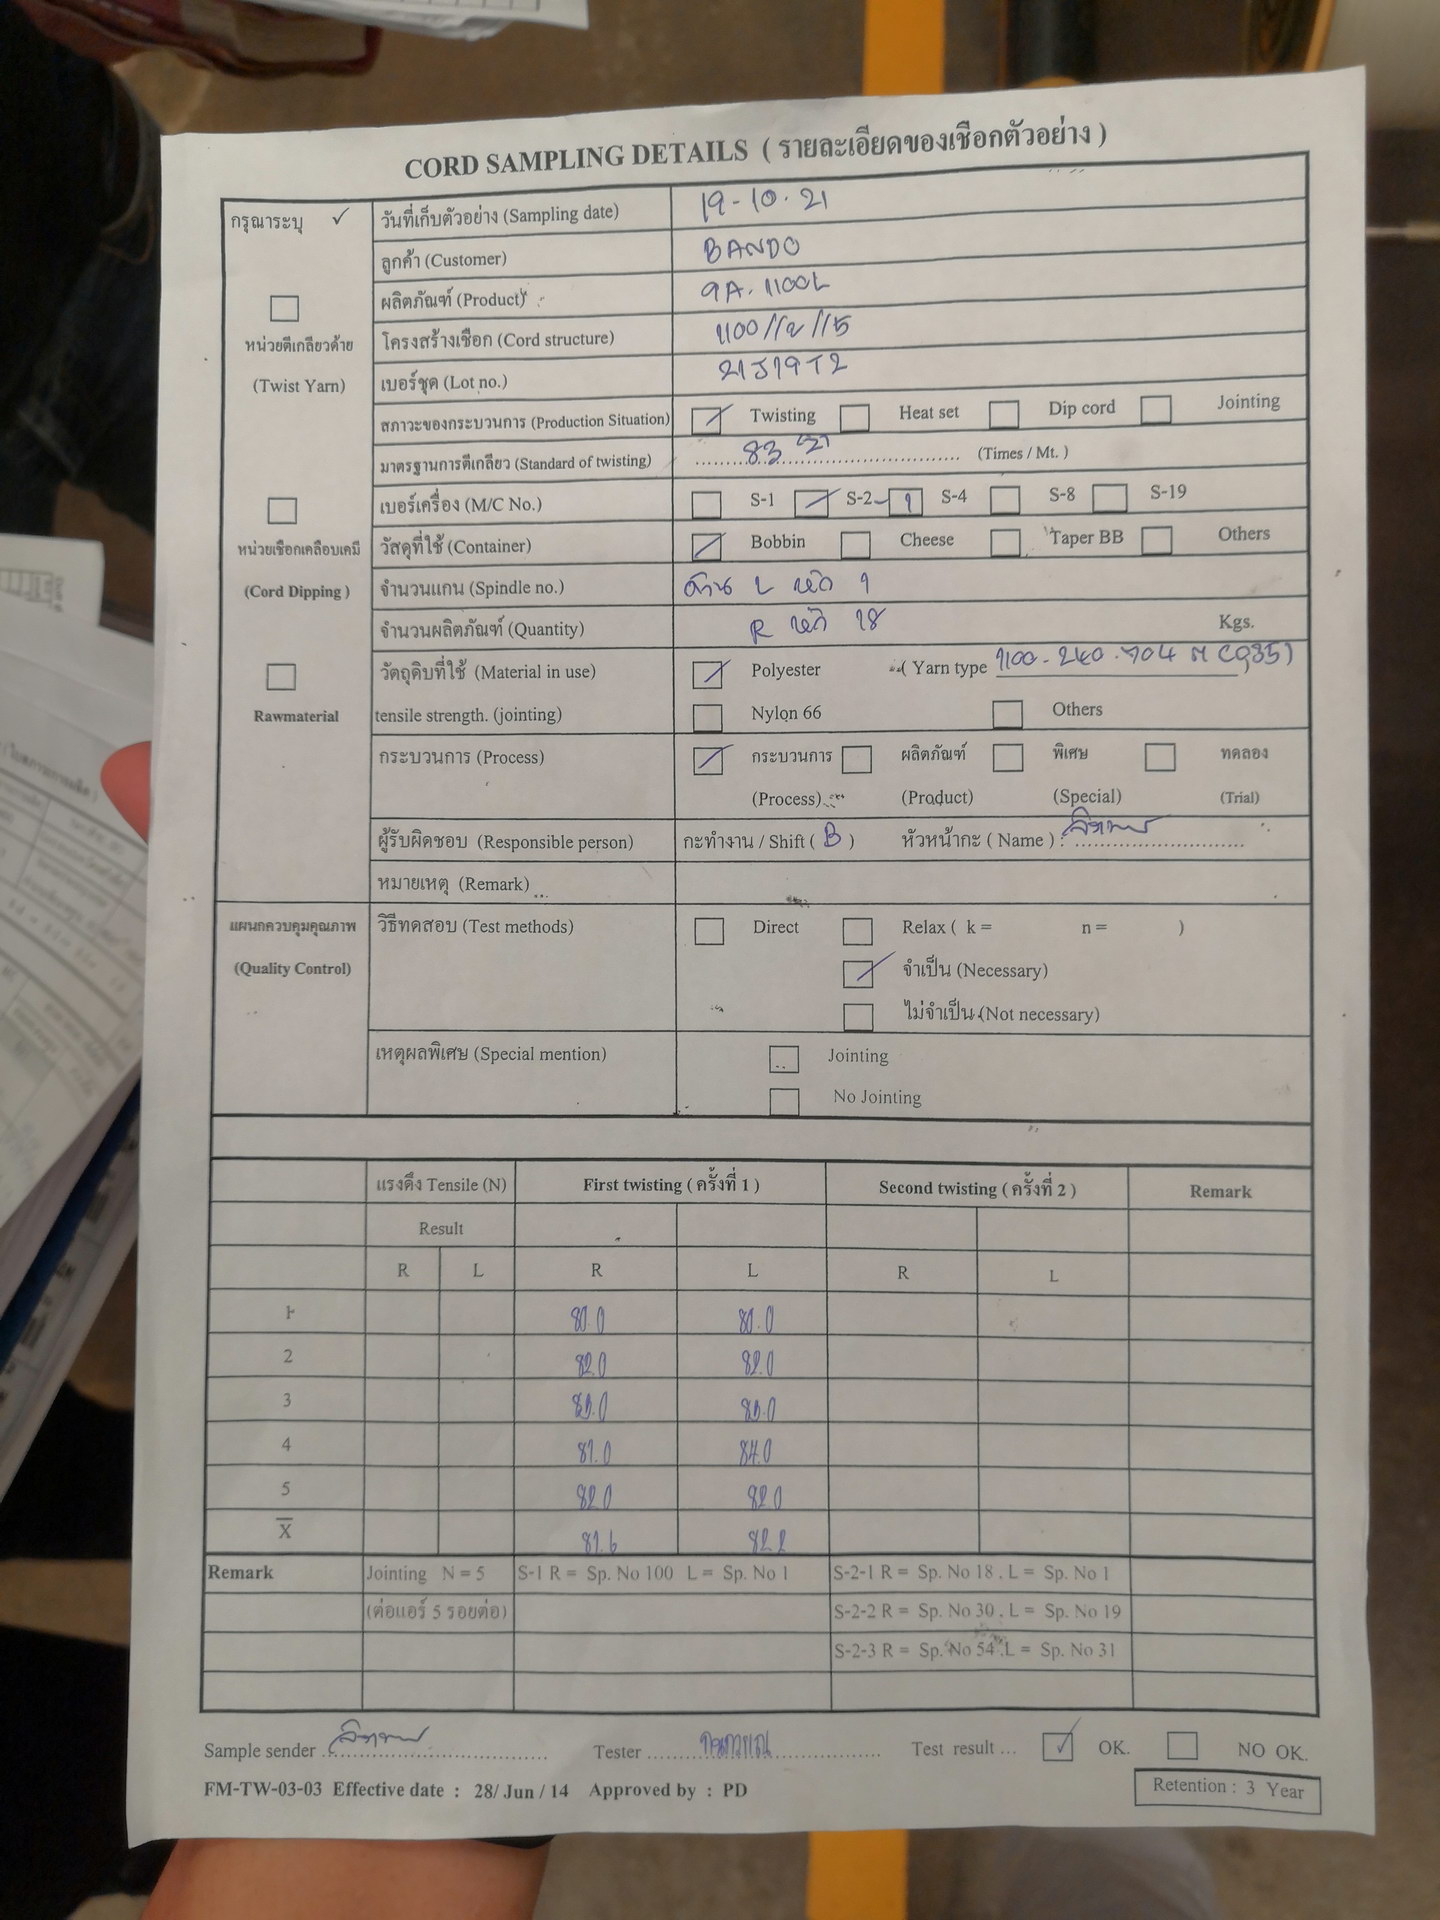 CORD SAMPLING DETAILS ( รายละเอียดของเชือกตัวอย่าง )
กรุณาระบุ ✓ วันที่เก็บตัวอย่าง (Sampling date) 19-10-21
ลูกค้า (Customer) BANDO
ผลิตภัณฑ์ (Product) 9A-1100L
หน่วยตีเกลียวด้าย โครงสร้างเชือก (Cord structure) 1100//2//5
(Twist Yarn) เบอร์ชุด (Lot no.) 21J19T2
สภาวะของกระบวนการ (Production Situation) Twisting Heat set Dip cord Jointing
มาตรฐานการตีเกลียว (Standard of twisting) 83 (Times / Mt. )
เบอร์เครื่อง (M/C No.) S-1 S-2-1 S-4 S-8 S-19
หน่วยเชือกเคลือบเคมี วัสดุที่ใช้ (Container) Bobbin Cheese Taper BB Others
(Cord Dipping ) จำนวนแกน (Spindle no.) ด้าน L หลัก 1
จำนวนผลิตภัณฑ์ (Quantity) R หลัก 18 Kgs.
วัตถุดิบที่ใช้ (Material in use) Polyester ( Yarn type 1100-240-704 M (935) )
Rawmaterial tensile strength. (jointing) Nylon 66 Others
กระบวนการ (Process) กระบวนการ ผลิตภัณฑ์ พิเศษ ทดลอง
(Process) (Product) (Special) (Trial)
ผู้รับผิดชอบ (Responsible person) กะทำงาน / Shift ( B ) หัวหน้ากะ ( Name ) :
หมายเหตุ (Remark)
แผนกควบคุมคุณภาพ วิธีทดสอบ (Test methods) Direct Relax ( k = n = )
(Quality Control) จำเป็น (Necessary)
ไม่จำเป็น (Not necessary)
เหตุผลพิเศษ (Special mention) Jointing
No Jointing
แรงดึง Tensile (N) First twisting ( ครั้งที่ 1 ) Second twisting ( ครั้งที่ 2 ) Remark
Result
R L R L R L
1 80.0
2 82.0 82.0
3
4 81.0 84.0
5 82.0 82.0
X̄ 81.6 82.2
Remark Jointing N = 5 S-1 R = Sp. No 100 L = Sp. No 1 S-2-1 R = Sp. No 18 . L = Sp. No 1
(ต่อแอร์ 5 รอยต่อ) S-2-2 R = Sp. No 30 . L = Sp. No 19
S-2-3 R = Sp. No 54 .L = Sp. No 31
Sample sender Tester Test result ... ✓ OK. NO OK.
FM-TW-03-03 Effective date : 28/ Jun / 14 Approved by : PD Retention : 3 Year